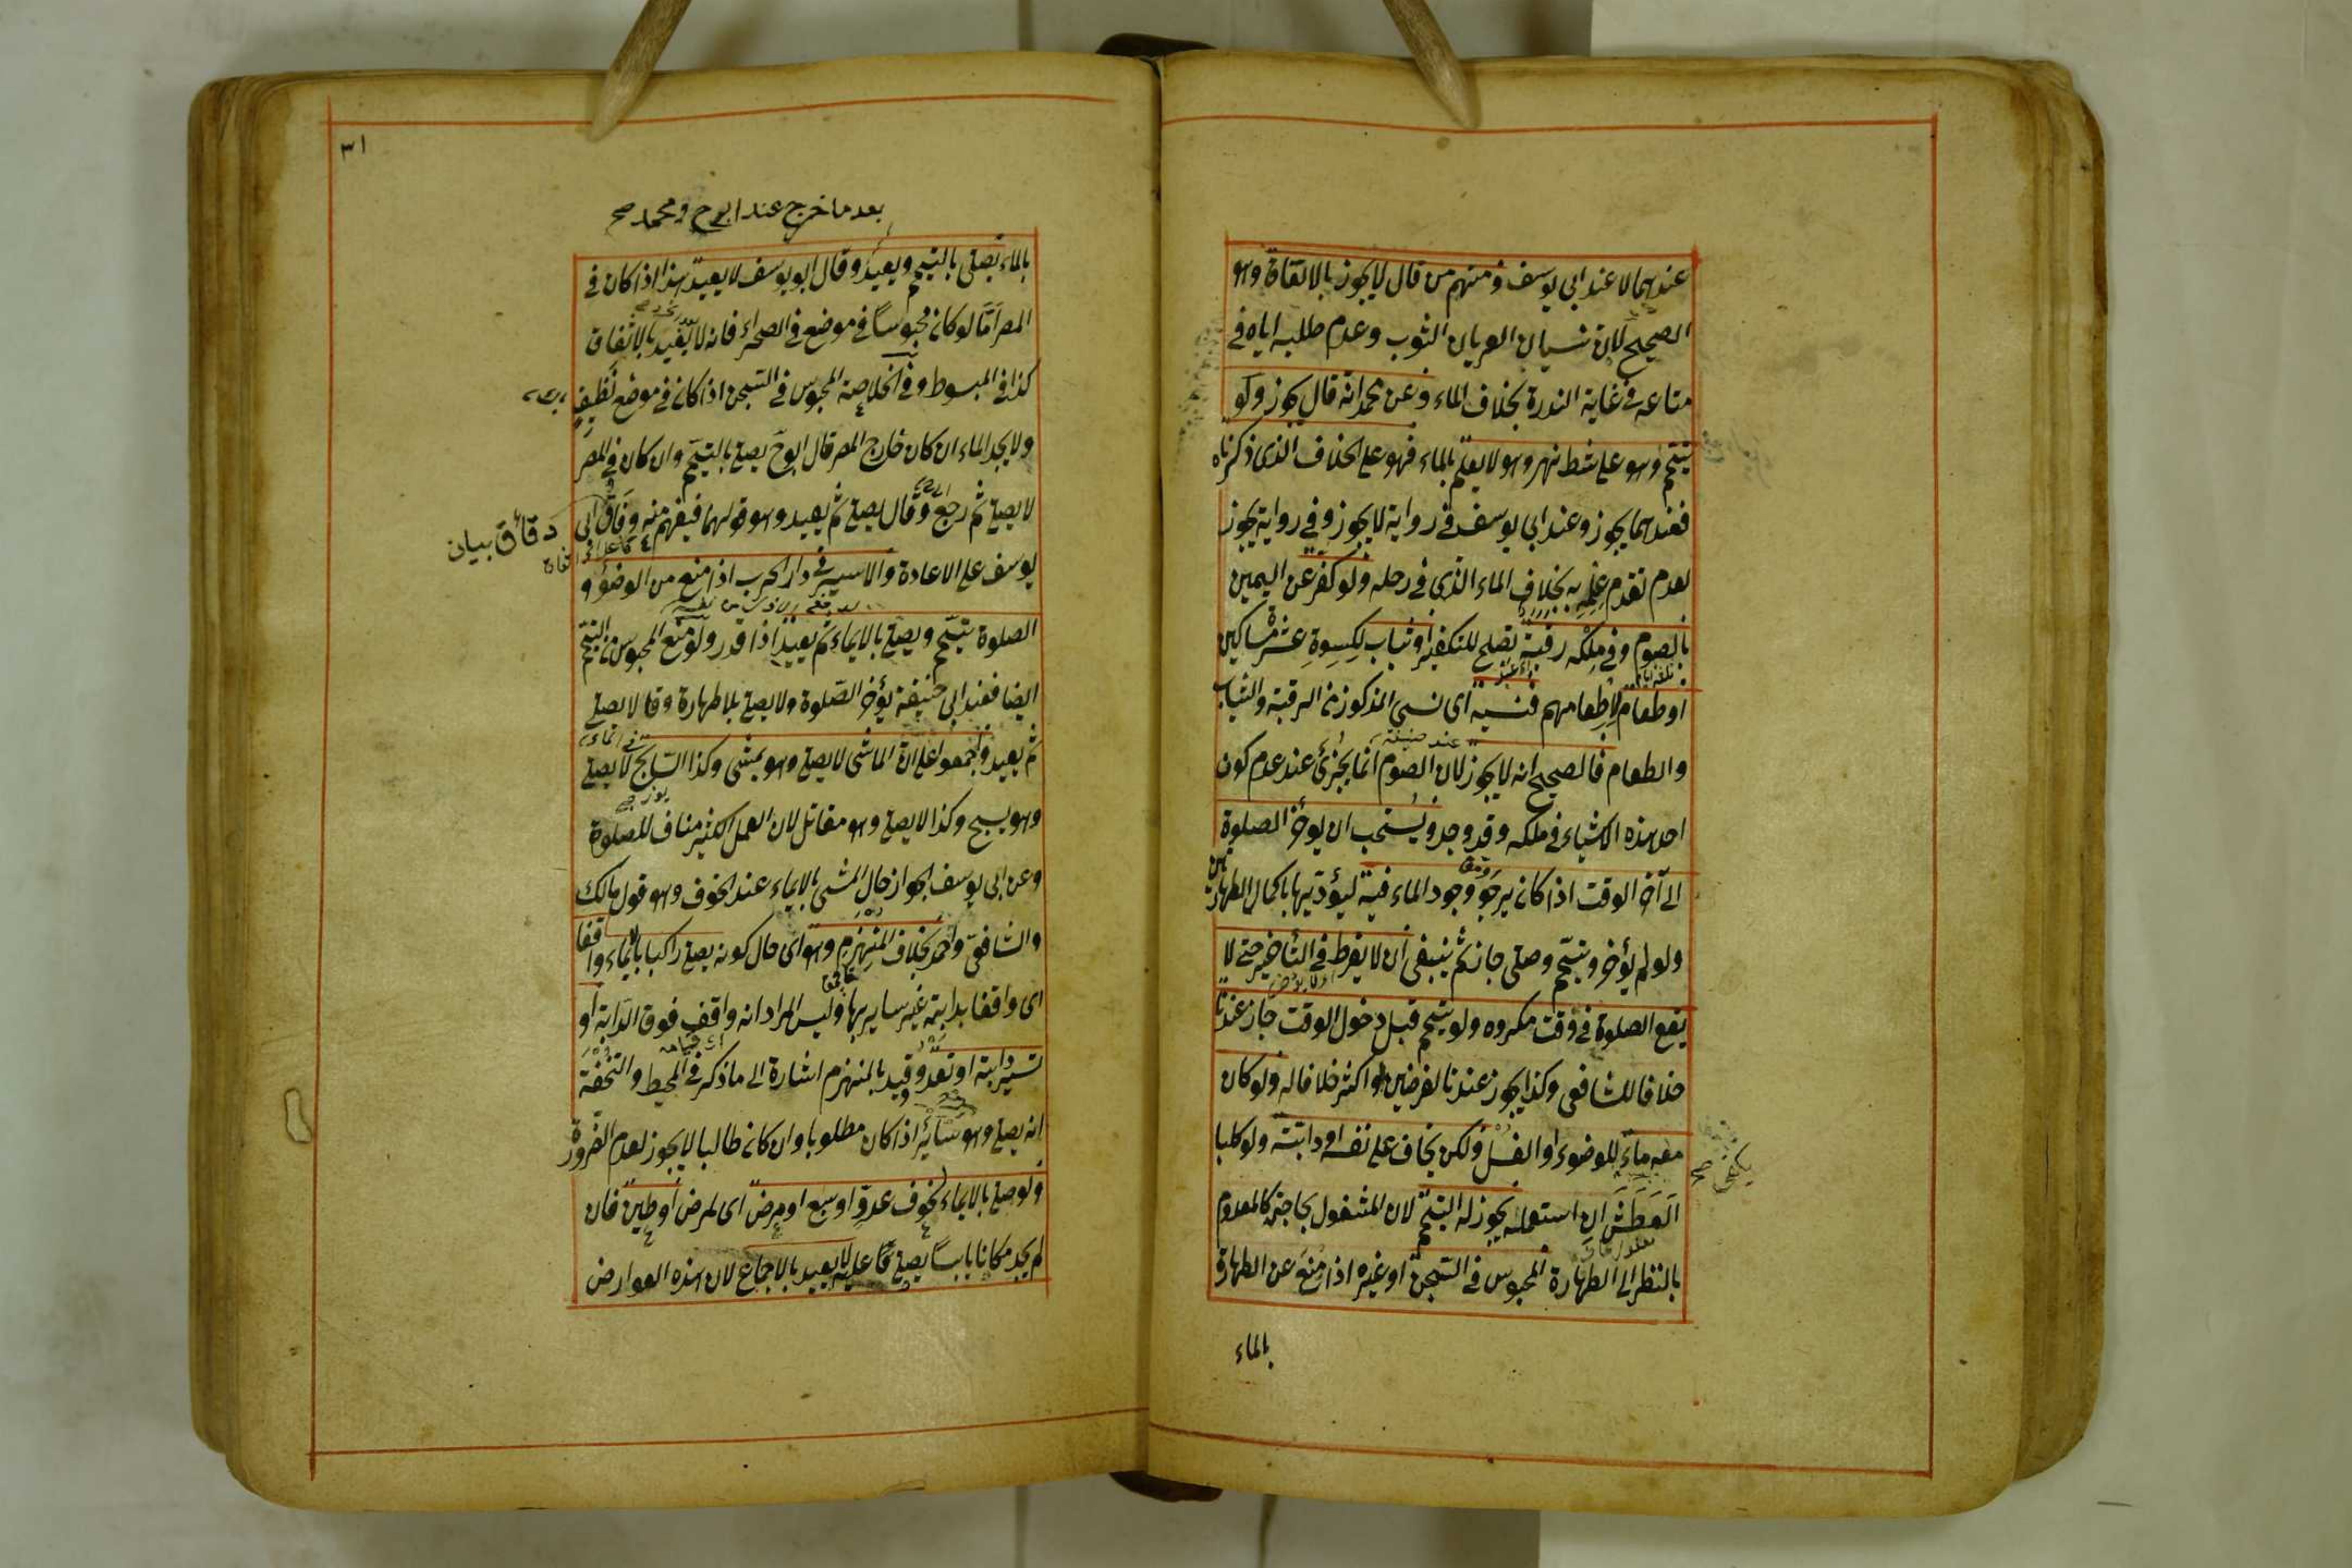 عندهما لا عند ابى يوسف ومنهم من قال لا يجوز بالاتفاق وهو
الصحيح لان نسيان العريان الثوب وعدم طلبه اياه فى
متاعه فى غاية الندرة بخلاف الماء وعن محمد انه قال يجوز ولو
تيمم وهو على شط نهر وهو لا يعلم بالماء فهو على الخلاف الذى ذكرناه
فعندهما يجوز وعند ابى يوسف فى رواية لا يجوز وفى رواية يجوز
لعدم تقدم علمه به بخلاف الماء الذى فى رحله ولو كفر عن اليمين
بالصوم وفى ملكه رقبة تصلح للتكفير او ثياب لكسوة عشر مساكين
او طعام لاطعامهم فنسيه اى نسى المذكور من الرقبة والثياب
والطعام فالصحيح انه لا يجوز لان الصوم انما يجزئ عند عدم كون
احد هذه الاشياء فى ملكه وقد وجد ويستحب ان يؤخر الصلوة
الى آخر الوقت اذا كان يرجو وجود الماء فيه ليؤديها باكمل الطهارتين
ولو لم يؤخر وتيمم وصلى جاز ثم ينبغى ان لا يفرط فى التأخير حتى لا
يقع الصلوة فى وقت مكروه ولو تيمم قبل دخول الوقت جاز عندنا
خلافا للشافعى وكذا يجوز عندنا لفرضين او اكثر خلافا له ولو كان
معه ماء للوضوء او الغسل ولكن يخاف على نفسه او دابته ولو كلبا
يكفى صح
العطش ان استعمله يجوز له التيمم لان المشغول بحاجته كالمعدوم
بالنظر الى الطهارة المحبوس فى السجن او غيره اذا منع عن الطهارة
بالماء
٣١
بعد ما خرج عند ابوح ومحمد صح
بالماء يصلى بالتيمم ويعيد وقال ابو يوسف لا يعيد هذا اذا كان فى
المصر اما لو كان محبوسا فى موضع فى الصحراء فانه لا يعيد بالاتفاق
كذا فى المبسوط وفى الخلاصة المحبوس فى السجن اذا كان فى موضع نظيف
ولا يجد الماء ان كان خارج المصر قال ابوح يصلى بالتيمم وان كان فى المصر
لا يصلى ثم رجع وقال يصلى ثم يعيد وهو قولهما فيفهم منه وفاق ابى
دقائق بيان
يوسف على الاعادة والاسير فى دار الحرب اذا منع من الوضوء و
الصلوة تيمم ويصلى بالايماء ثم يعيد اذا قدر ولو منع المحبوس من التيمم
ايضا فعند ابى حنيفة يؤخر الصلوة ولا يصلى بلا طهارة وقالا يصلى
ثم يعيد واجمعوا على ان الماشى لا يصلى وهو يمشى وكذا السابح لا يصلى
وهو يسبح وكذا لا يصلى وهو مقاتل لان العمل الكثير مناف للصلوة
وعن ابى يوسف الجواز حال المشى بالايماء عند الخوف وهو قول مالك
والشافعى واحمد بخلاف المنهزم وهو اى حال كونه يصلى راكبا بالايماء واقفا
اى واقفا بدابته غير ساير بها وليس المراد انه واقف فوق الدابة او
تسير دابته او تعدو وقيد بالمنهزم اشارة الى ما ذكر فى المحيط والتحفة
انه يصلى وهو سائر اذا كان مطلوبا وان كان طالبا لا يجوز لعدم الضرورة
ولو صلى بالايماء لخوف عدو او سبع او مرض اى لمرض او طين فان
لم يجد مكانا يابسا يصلى قائما عليه لا يعيد بالاجماع لان هذه العوارض